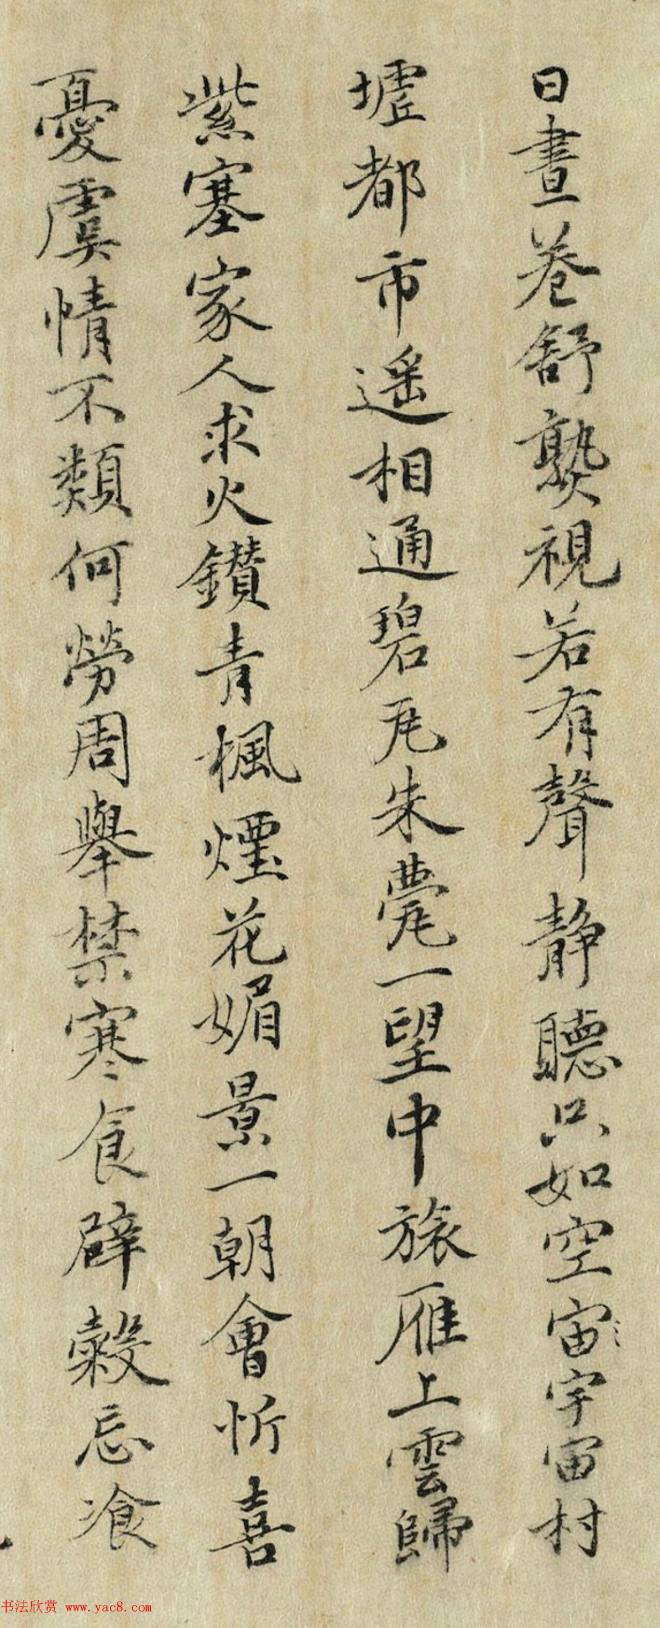 日晝卷舒熟視若有聲静聽只如空宙宇宙村
墟都市遥相通碧瓦朱甍一望中旅雁上雲歸
紫塞家人求火鑚青楓煙花媚景一朝會忻喜
憂虞情不類何勞周舉禁寒食辟穀忌飡
书法欣赏 www.yac8.com